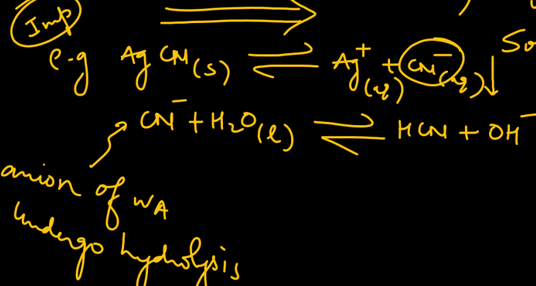 Imp
e.g AgCN(s) ⇌ Ag⁺(aq) + CN⁻(aq) ↓
CN⁻ + H2O(l) ⇌ HCN + OH⁻
anion of WA
undergo hydrolysis